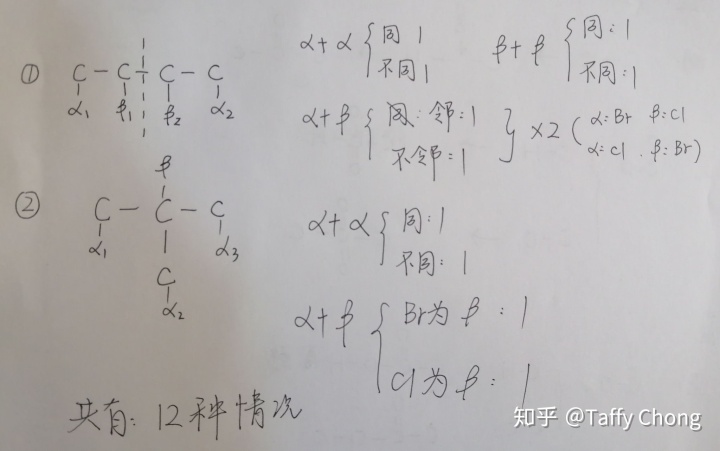 ① C - C - C - C
α₁ β₁ β₂ α₂
α+α { 同 1
不同 1
β+β { 同: 1
不同: 1
α+β { 邻: 1
不邻: 1
} ×2 ( α: Br β: Cl
α: Cl . β: Br )
② β
C - C - C
α₁ α₃
C
α₂
α+α { 同: 1
不同: 1
α+β { Br为β: 1
Cl为β: 1
共有: 12种情况
知乎 @Taffy Chong